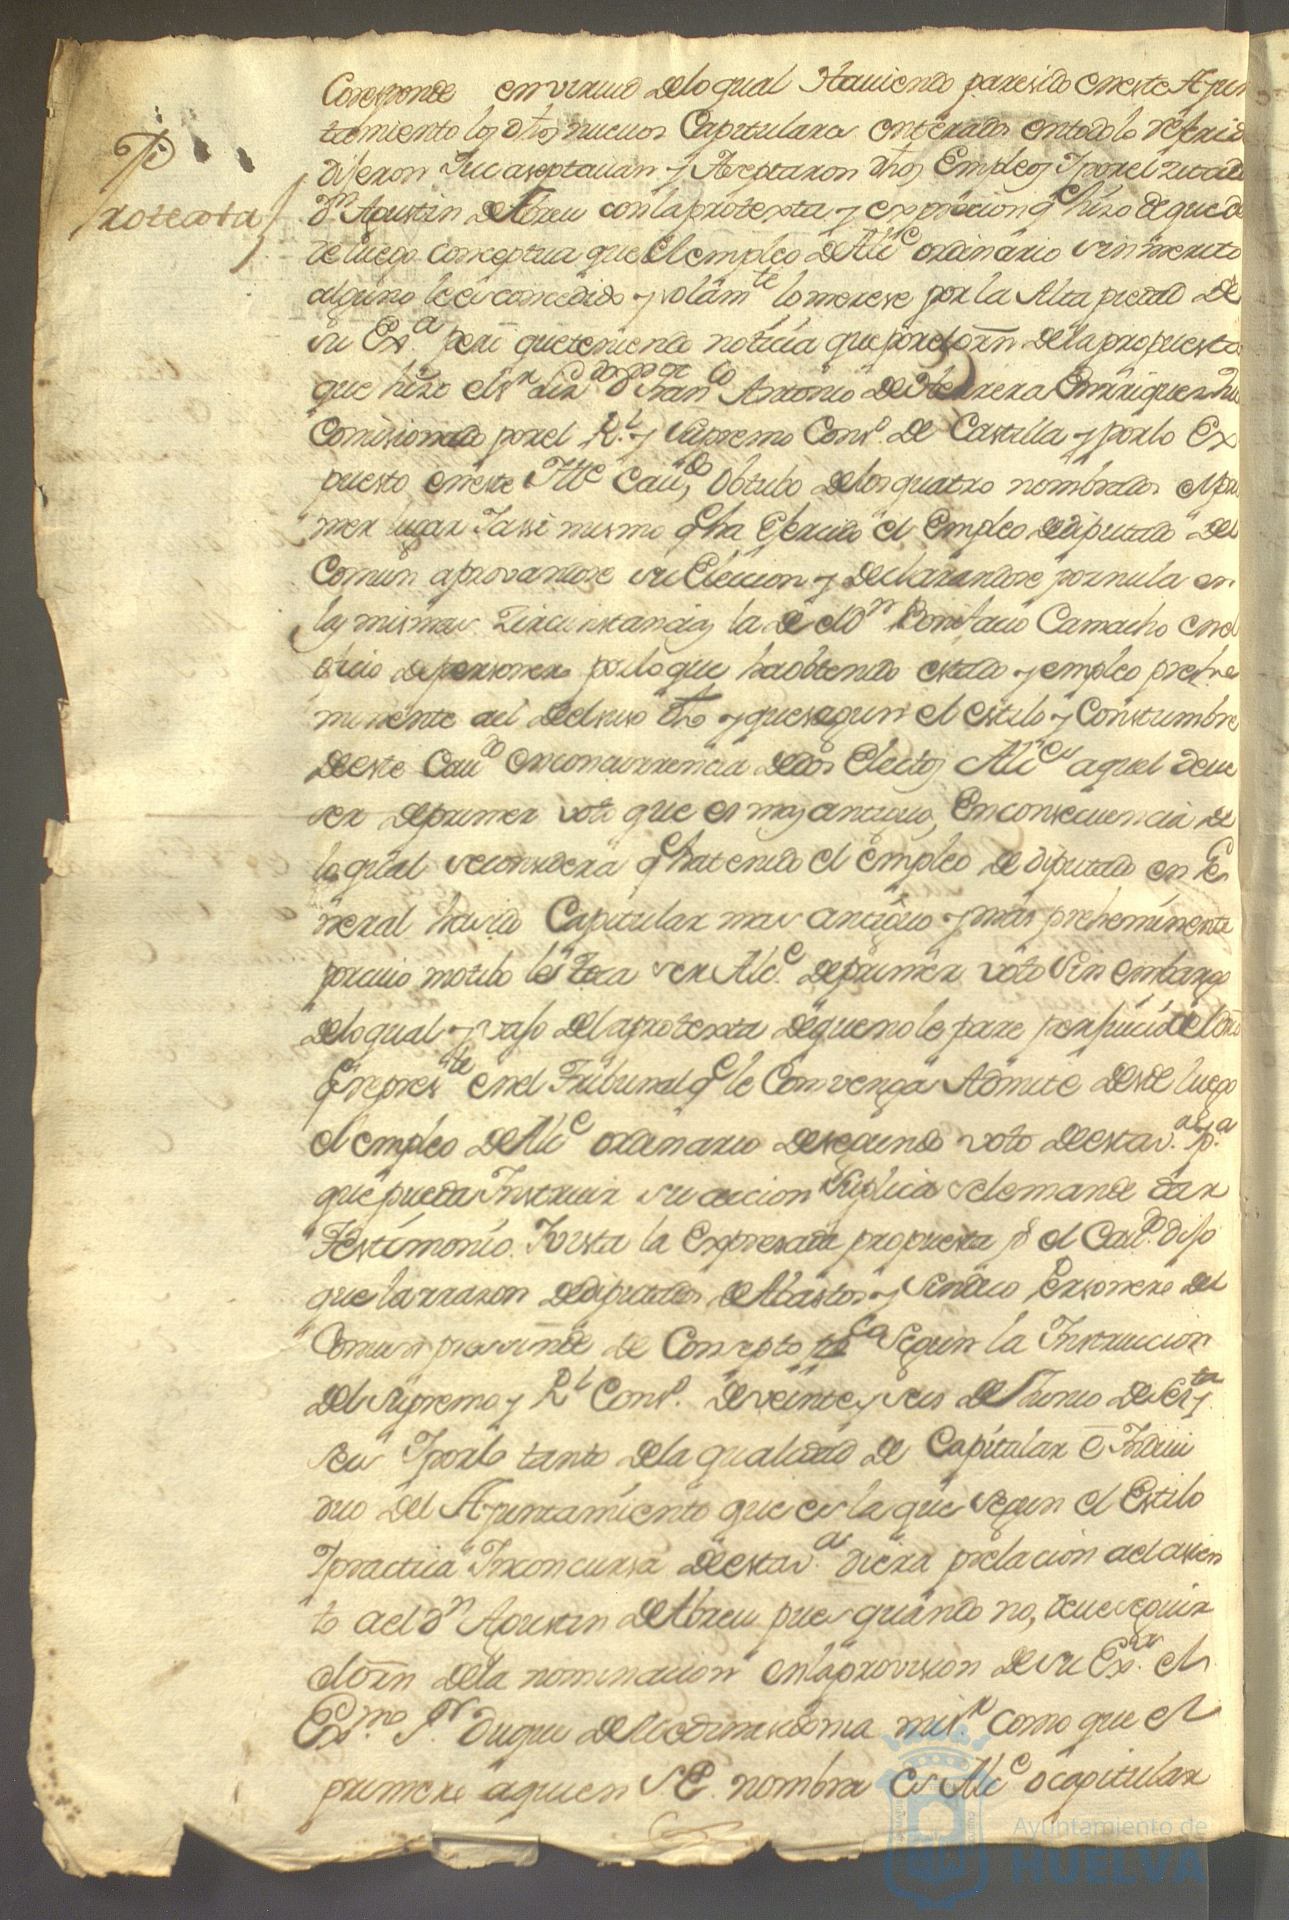 Protexta
Corresponde en virtud delo qual Haviendo paresido en este Ayun
tamiento los dhos nuevos Capitulares enterados en todo lo referido
dijeron que aseptavan y Aceptaron dhos Empleos Y por el zitado
Dn Agustin de Abreu con la protexta y expresion q hizo de que de
de luego conceptua que El empleo de Alce ordinario sin merito
alguno le es concedido y solamte lo merese por la Alta piedad de
su Exa pero que teniendo noticia que por el orn de la propuesta
que hizo el Sr Lizdo Dn Franco Antonio de Herrera Enrriquez
Comisionado por el Rl y Supremo Conso de Castilla y por lo Ex
puesto en este Ille Cavdo Obtubo de los quatro nombrados el pri
mer lugar Y assi mismo q ha Ejercido el Empleo de diputado del
Comun aprovandose su Eleccion y declarandose por nula en
las mismas Zircunstancias la de el Dn Bonifacio Camacho en el
oficio de personero por lo que ha obtenido estado y empleo prehe
minente ael del suso dho y que segun el estilo y Constumbre
de este Cavdo en concurrencia de dos Electos Alces aquel deve
ser de primer voto que es mas antiguo, En consecuencia de
lo qual se considera q ha tenido el empleo de diputado en Ge
neral havido Capitular mas antiguo y mas preheminente
por cuio motibo le toca ser Alce de primer voto Sin embargo
de lo qual y vajo de la protexta de que no le pare perjuicio
represte en el Tribunal q le Convenga Admite desde luego
el empleo de Alce ordinario de segundo voto de esta va Y pa
que pueda Instruir su accion Suplica se le mande dar
Testimonio. Y vista la Expresada propuesta por el Cavdo dijo
que la rrazon de diputados de Abastos y Sindico Personero del
Comun prosvinde de Consepto Segun la Instruccion
del Supremo y Rl Conso de veinte y seis de Junio de sesta y
seis Y por lo tanto de la qualidad de Capitular e Indivi
duo del Ayuntamiento que es la que segun el Estilo
Y practica Inconcursa de esta va diera prelacion ael asien
to ael Dn Agustin de Abreu pues quando no, deve seguir
el orn de la nominacion en la provision de su Exa el
Exmo Sr Duque de Medinasidonia mi Sr como que el
primero aquien S.E. nombra es Alce o capitular
Ayuntamiento de
HUELVA